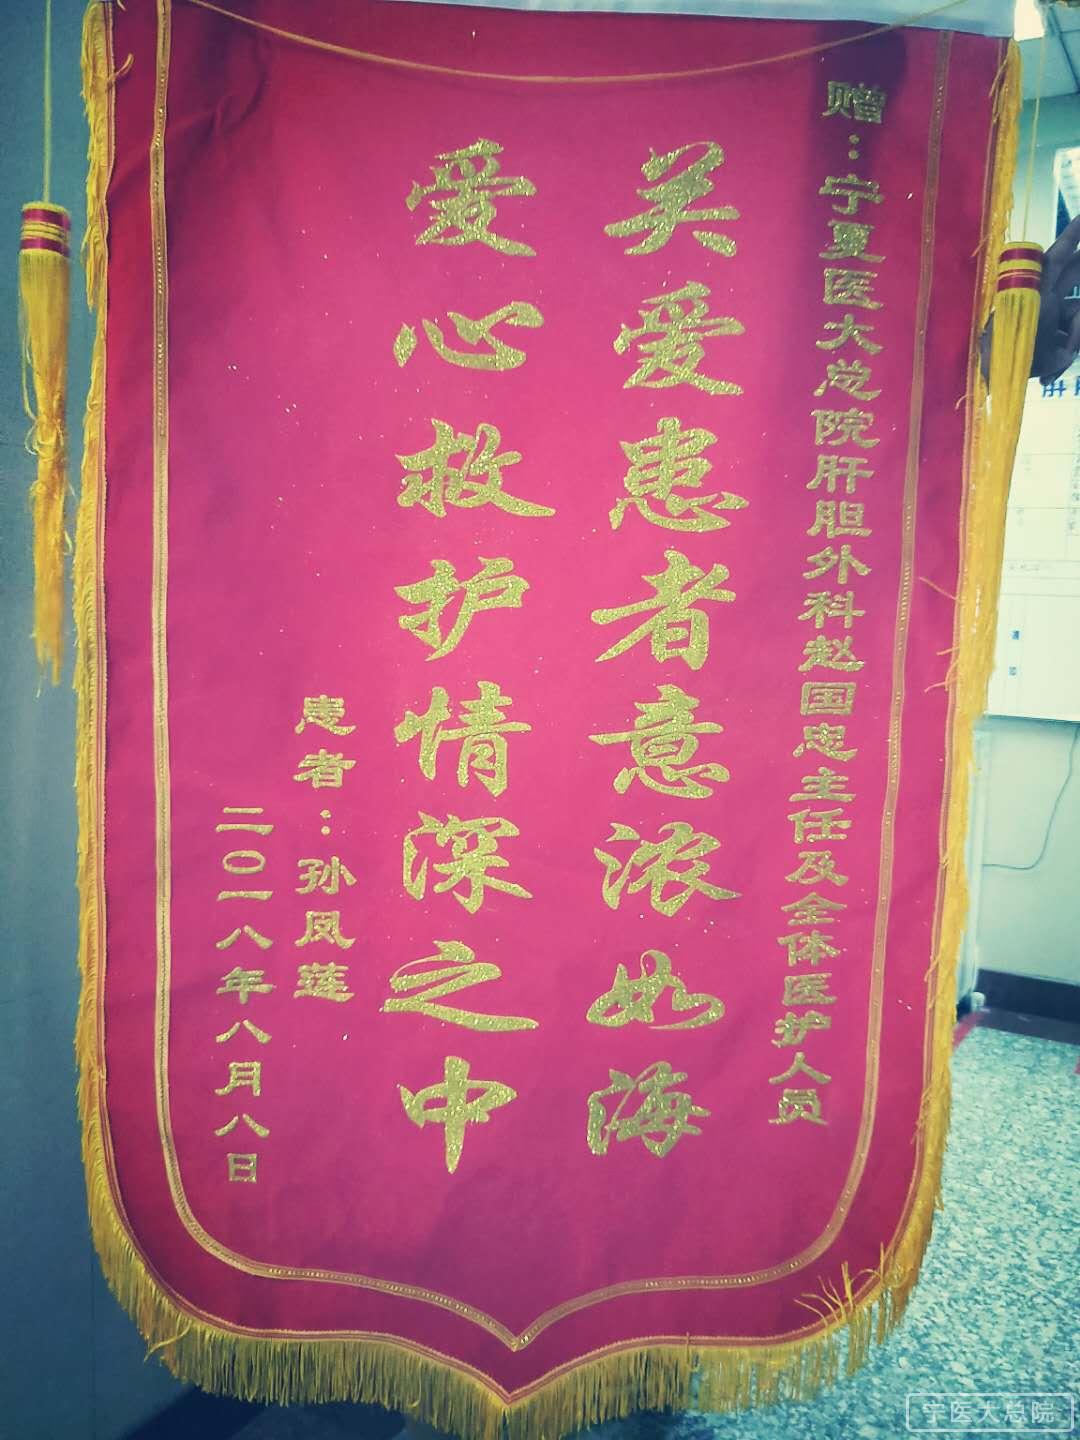 赠：宁夏医大总院肝胆外科赵国忠主任及全体医护人员
关爱患者意浓如海
爱心救护情深之中
患者：孙凤莲
二〇一八年八月八日
宁医大总院